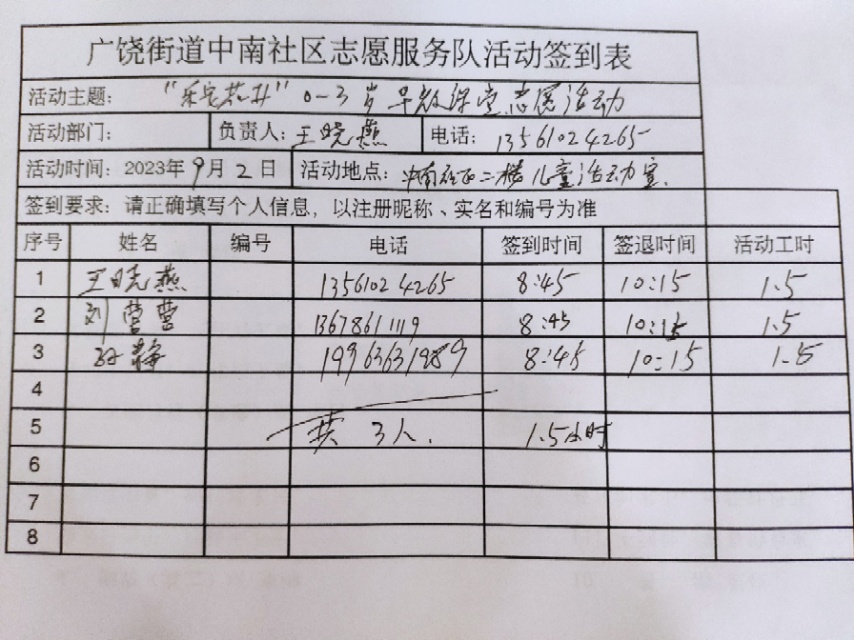 广饶街道中南社区志愿服务队活动签到表
活动主题： "乐宝花朵" 0-3岁早教课堂志愿活动
活动部门： 负责人：王晓燕 电话：13561024265
活动时间：2023年9月2日 活动地点：中南社区二楼儿童活动室.
签到要求：请正确填写个人信息，以注册昵称、实名和编号为准
序号 姓名 编号 电话 签到时间 签退时间 活动工时
1 王晓燕 13561024265 8:45 10:15 1.5
2 刘营营 13678611119 8:45 10:15 1.5
3 孙静 19963631989 8:45 10:15 1.5
4
5 共3人. 1.5小时
6
7
8